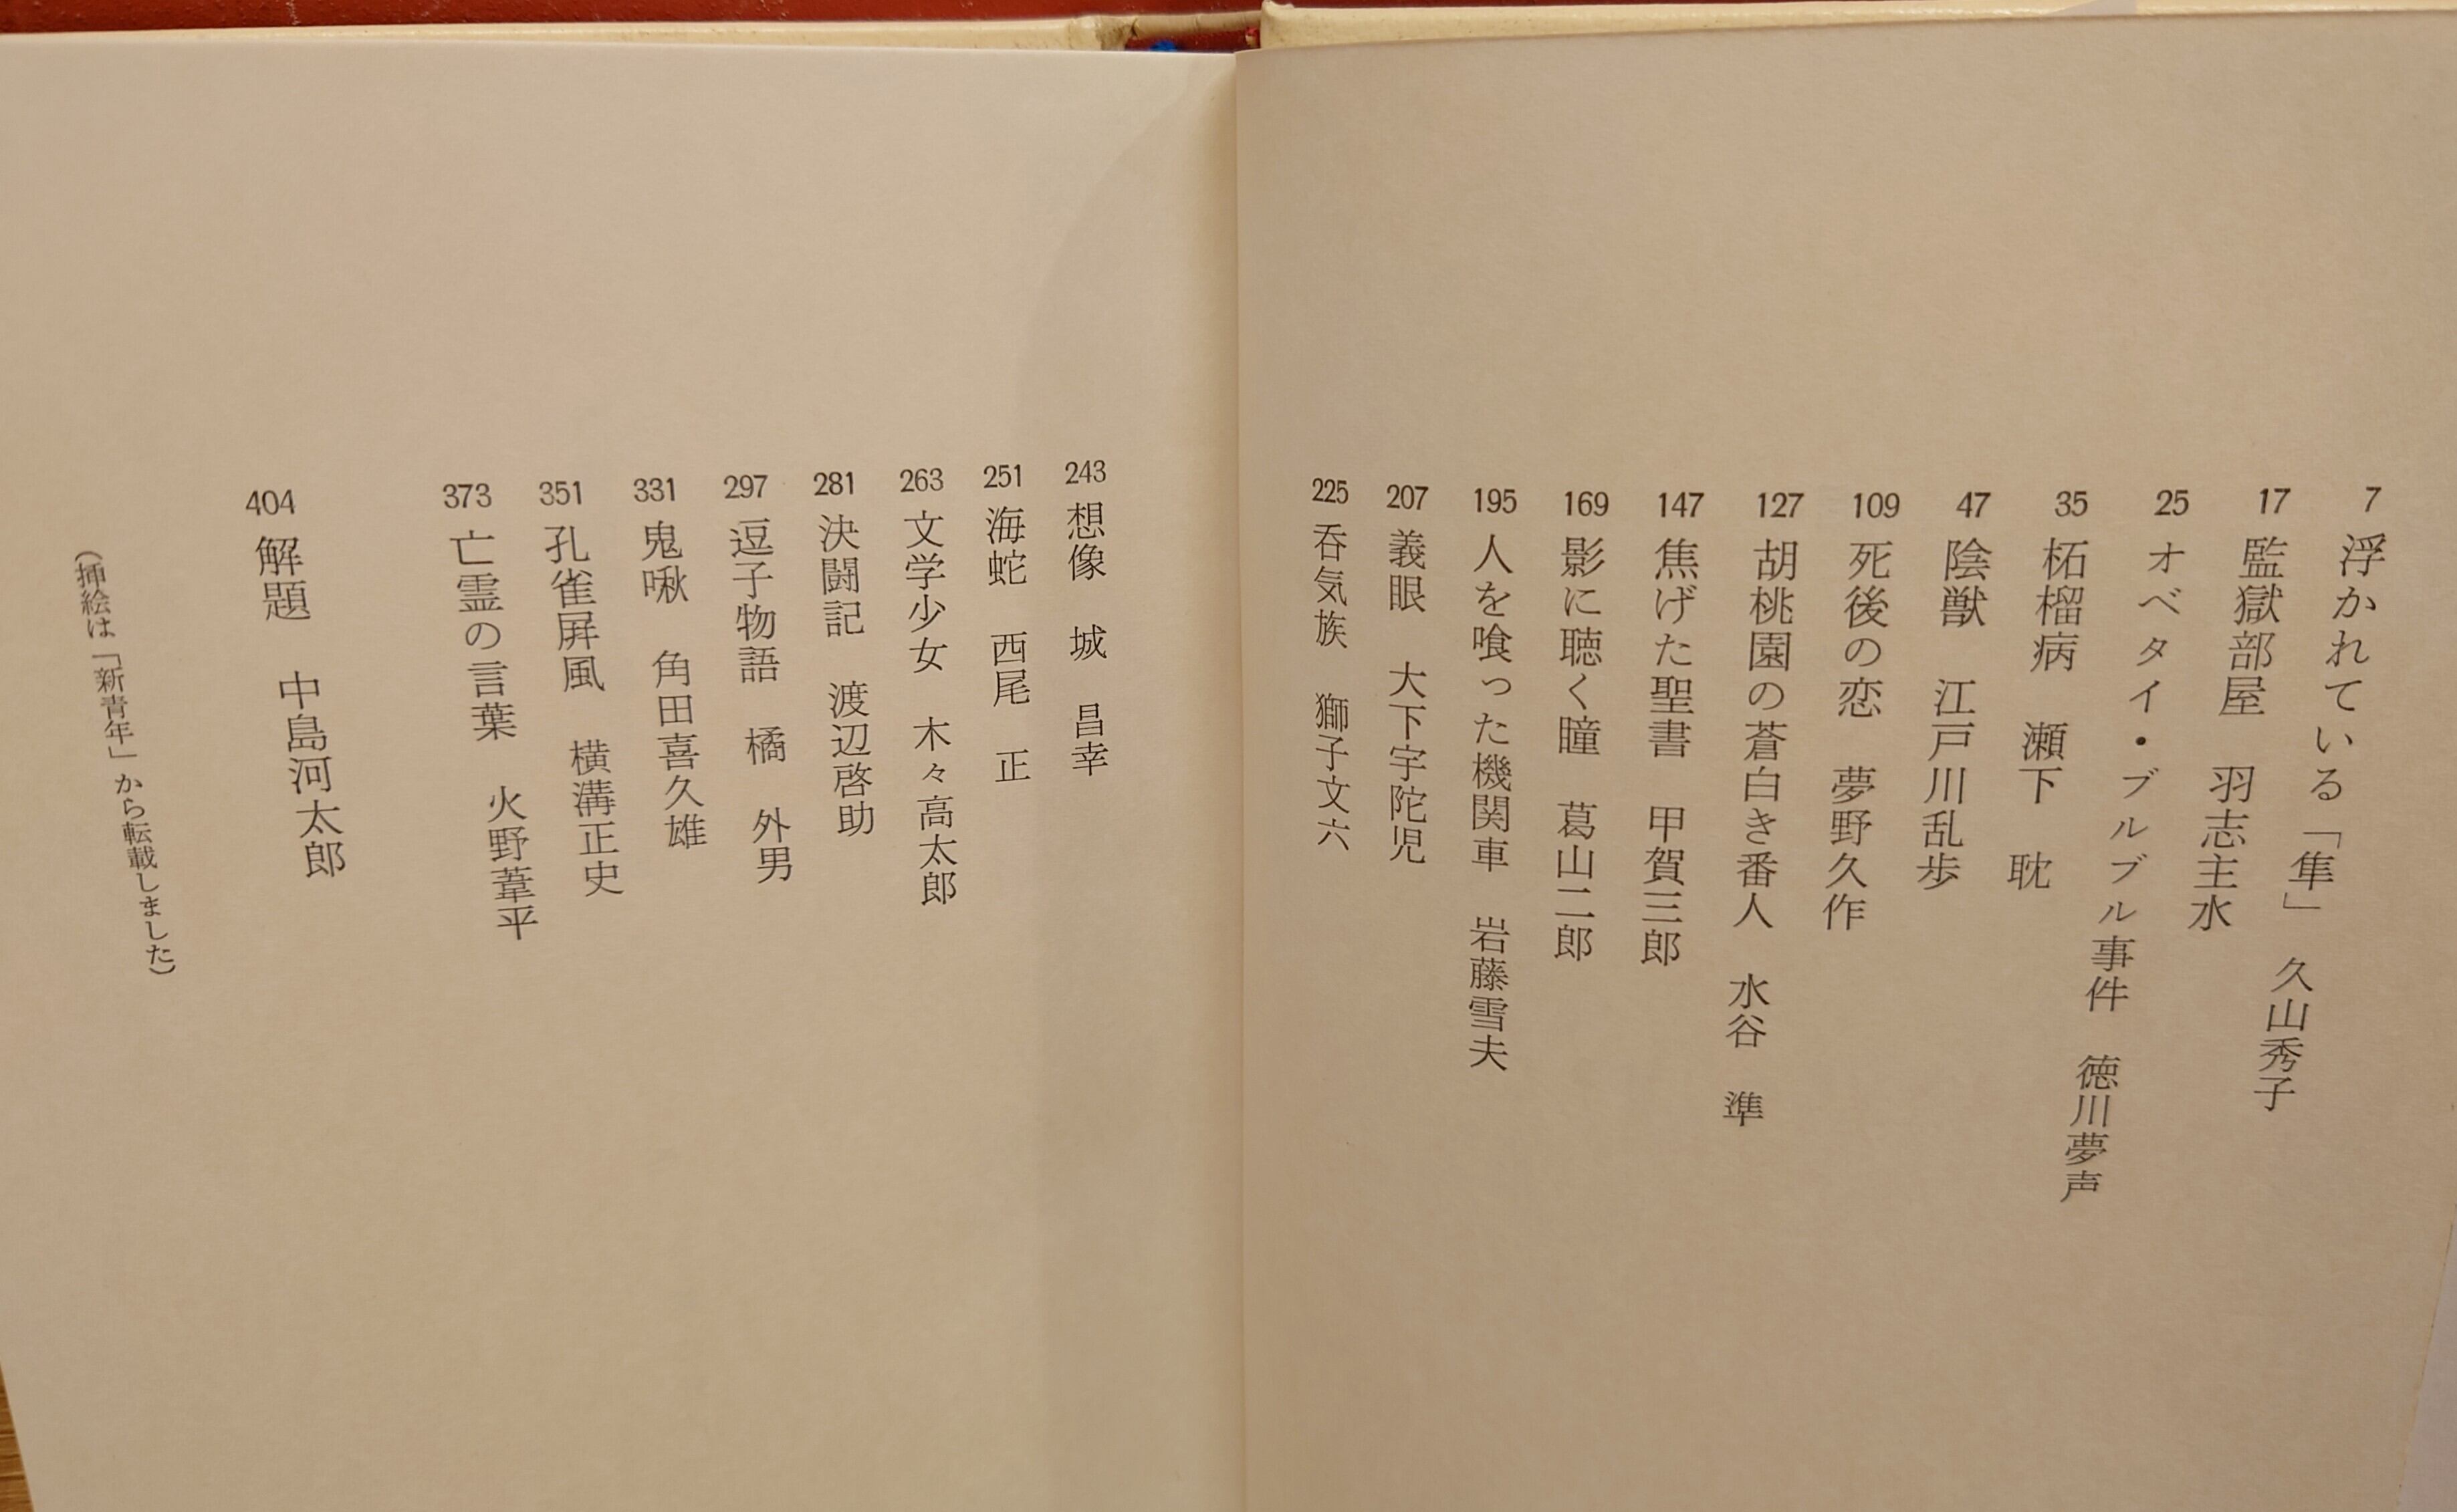 7 浮かれている「隼」 久山秀子
17 監獄部屋 羽志主水
25 オベタイ・ブルブル事件 徳川夢声
35 柘榴病 瀬下 耽
47 陰獣 江戸川乱歩
109 死後の恋 夢野久作
127 胡桃園の蒼白き番人 水谷 準
147 焦げた聖書 甲賀三郎
169 影に聴く瞳 葛山二郎
195 人を喰った機関車 岩藤雪夫
207 義眼 大下宇陀児
225 呑気族 獅子文六
243 想像 城 昌幸
251 海蛇 西尾 正
263 文学少女 木々高太郎
281 決闘記 渡辺啓助
297 逗子物語 橘 外男
331 鬼啾 角田喜久雄
351 孔雀屏風 横溝正史
373 亡霊の言葉 火野葦平
404 解題 中島河太郎
（挿絵は「新青年」から転載しました）